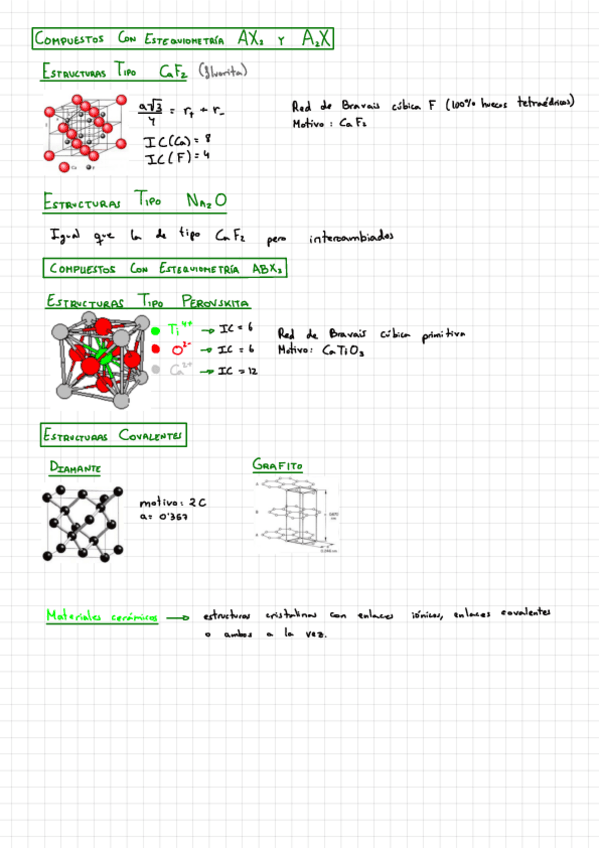 COMPUESTOS CON ESTEQUIOMETRÍA AX₂ Y A₂X
ESTRUCTURAS TIPO CaF₂ (fluorita)
a√3/4 = r₊ + r₋
IC(Ca) = 8
IC(F) = 4
Red de Bravais cúbica F (100% huecos tetraédricos)
Motivo: CaF₂
ESTRUCTURAS TIPO NA₂O
Igual que la de tipo CaF₂ pero intercambiados
COMPUESTOS CON ESTEQUIOMETRÍA ABX₃
ESTRUCTURAS TIPO PEROVSKITA
Ti⁴⁺ → IC = 6
O²⁻ → IC = 6
Ca²⁺ → IC = 12
Red de Bravais cúbica primitiva
Motivo: CaTiO₃
ESTRUCTURAS COVALENTES
DIAMANTE
motivo: 2C
a = 0'367
GRAFITO
Materiales cerámicos → estructuras cristalinas con enlaces iónicos, enlaces covalentes
o ambos a la vez.